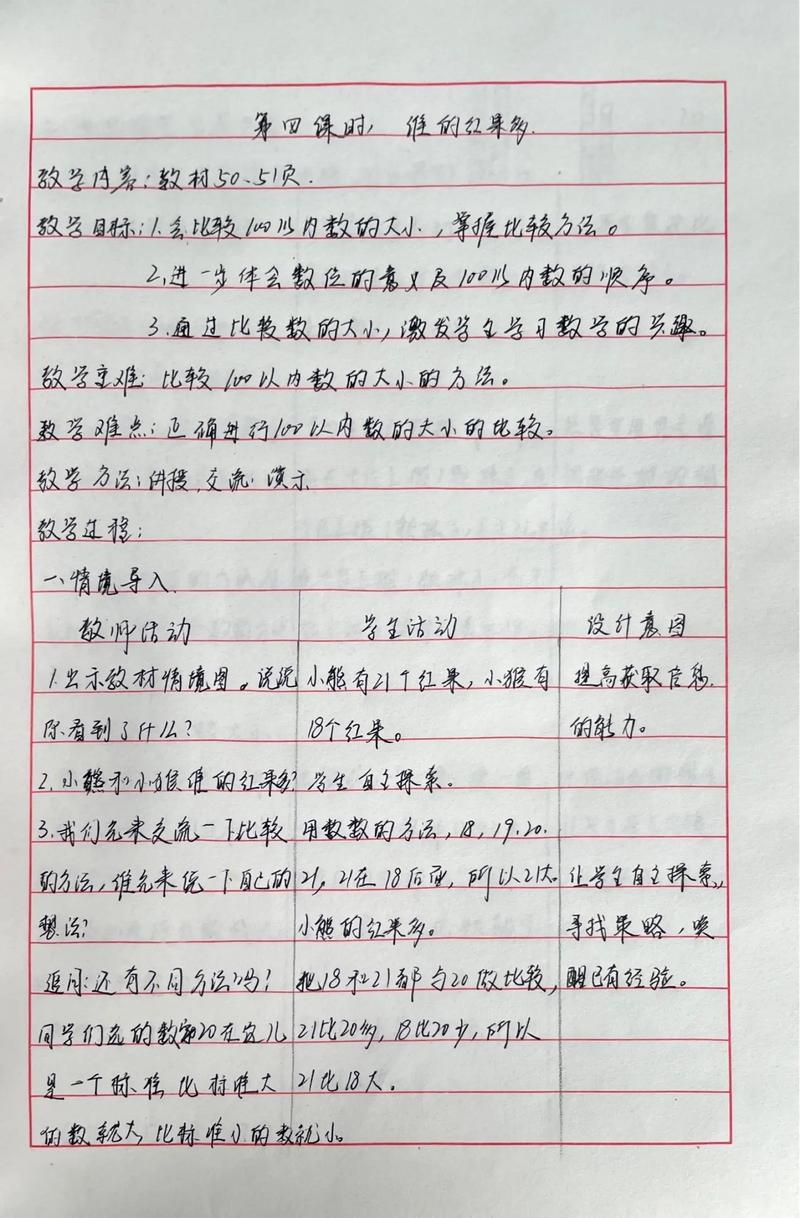 第四课时，谁的红果多.
教学内容：教材50、51页.
教学目标：1.会比较100以内数的大小，掌握比较方法。
2.进一步体会数位的意义及100以内数的顺序。
3.通过比较数的大小，激发学生学习数学的兴趣。
教学重难：比较100以内数的大小的方法。
教学难点：正确进行100以内数的大小的比较。
教学方法：讲授、交流、演示
教学过程：
一、情境导入.
教师活动 学生活动 设计意图
1.出示教材情境图。说说 小熊有21个红果，小猴有 提高获取信息
你看到了什么？ 18个红果。 的能力。
2.小熊和小猴谁的红果多？ 学生自主探索。
3.我们先来交流一下比较 用数数的方法，18，19.20.
的方法，谁先来说一下自己的 21，21在18后面，所以21大. 让学生自主探索，
想法？ 小熊的红果多。 寻找策略，唤
追问：还有不同方法吗？ 把18和21都与20做比较， 醒已有经验。
同学们选的数20在这儿 21比20多，18比20少，所以
是一个标准，比标准大 21比18大。
的数就大，比标准小的数就小。